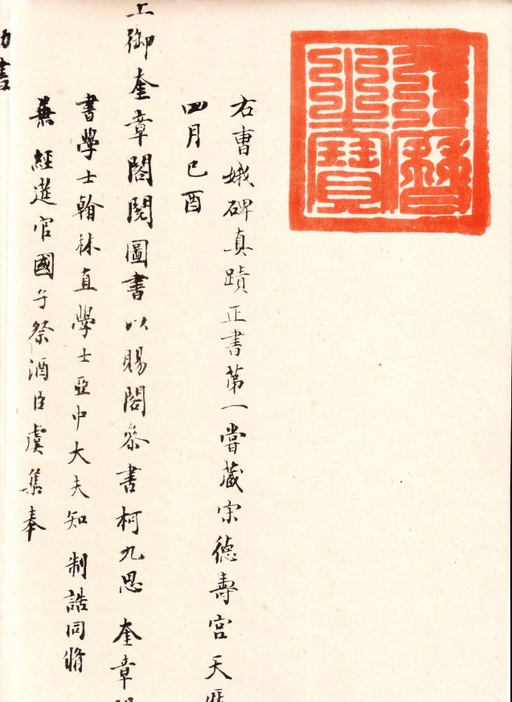 天曆之寶
右曹娥碑真蹟正書第一嘗藏宋德壽宮天
四月己酉
上御奎章閣閱圖書以賜閣參書柯九思 奎章
書學士翰林直學士亞中大夫知 制誥同脩
兼經筵官國子祭酒臣虞集奉
書